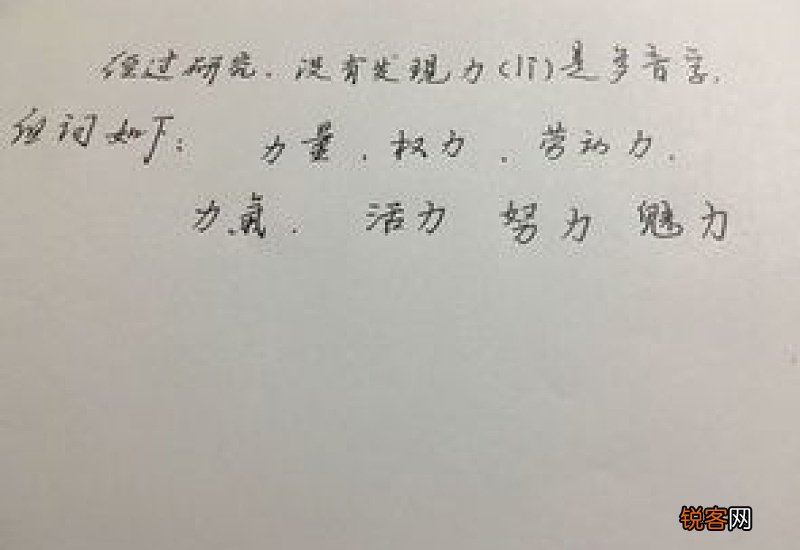 经过研究.没有发现力(lì)是多音字.
组词如下: 力量.权力.劳动力.
力氣. 活力 努力 魅力
锐客网